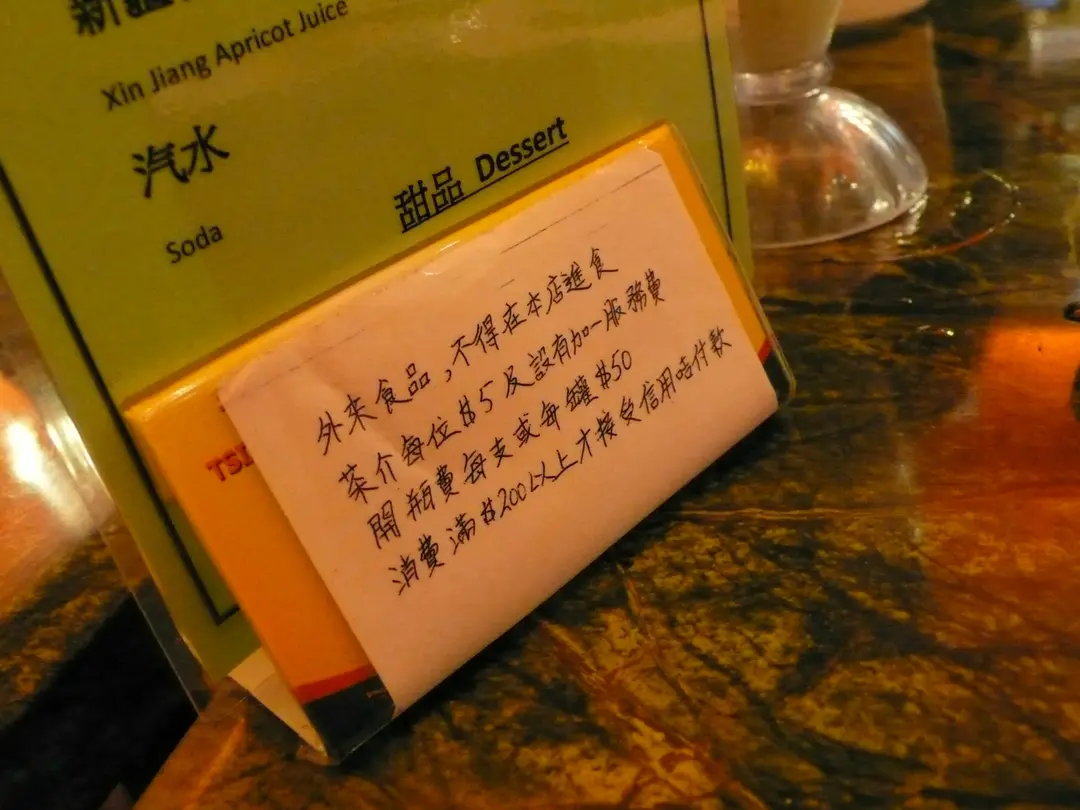 新疆
Xin Jiang Apricot Juice
汽水
Soda
甜品 Dessert
外來食品,不得在本店進食
茶介每位$5及設有加一服務費
開瓶費每支或每罐$50
消費滿$200以上才接受信用咭付款
TSI